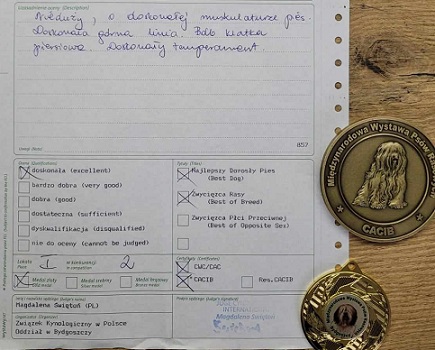 Uzasadnienie oceny (Description)
Nieduży, o doskonałej muskulaturze pies.
Doskonała górna linia. Bdb klatka
piersiowa. Doskonały temperament.
857
Ocena (Qualification)
doskonała (excellent)
bardzo dobra (very good)
dobra (good)
dostateczna (sufficient)
dyskwalifikacja (disqualified)
nie do oceny (cannot be judged)
Tytuły (Titles)
Najlepszy Dorosły Pies
(Best Dog)
Zwycięzca Rasy
(Best of Breed)
Zwycięzca Płci Przeciwnej
(Best of Opposite Sex)
Lokata
Place
I
w konkurencji
in competition
2
Medal złoty
Medal srebrny
Medal brązowy
CWC/CAC
CACIB
Res.CACIB
Magdalena Świętoń (PL)
INTERNATIONAL
Magdalena Świętoń
Związek Kynologiczny w Polsce
Oddział w Bydgoszczy
Międzynarodowa Wystawa Psów
CACIB